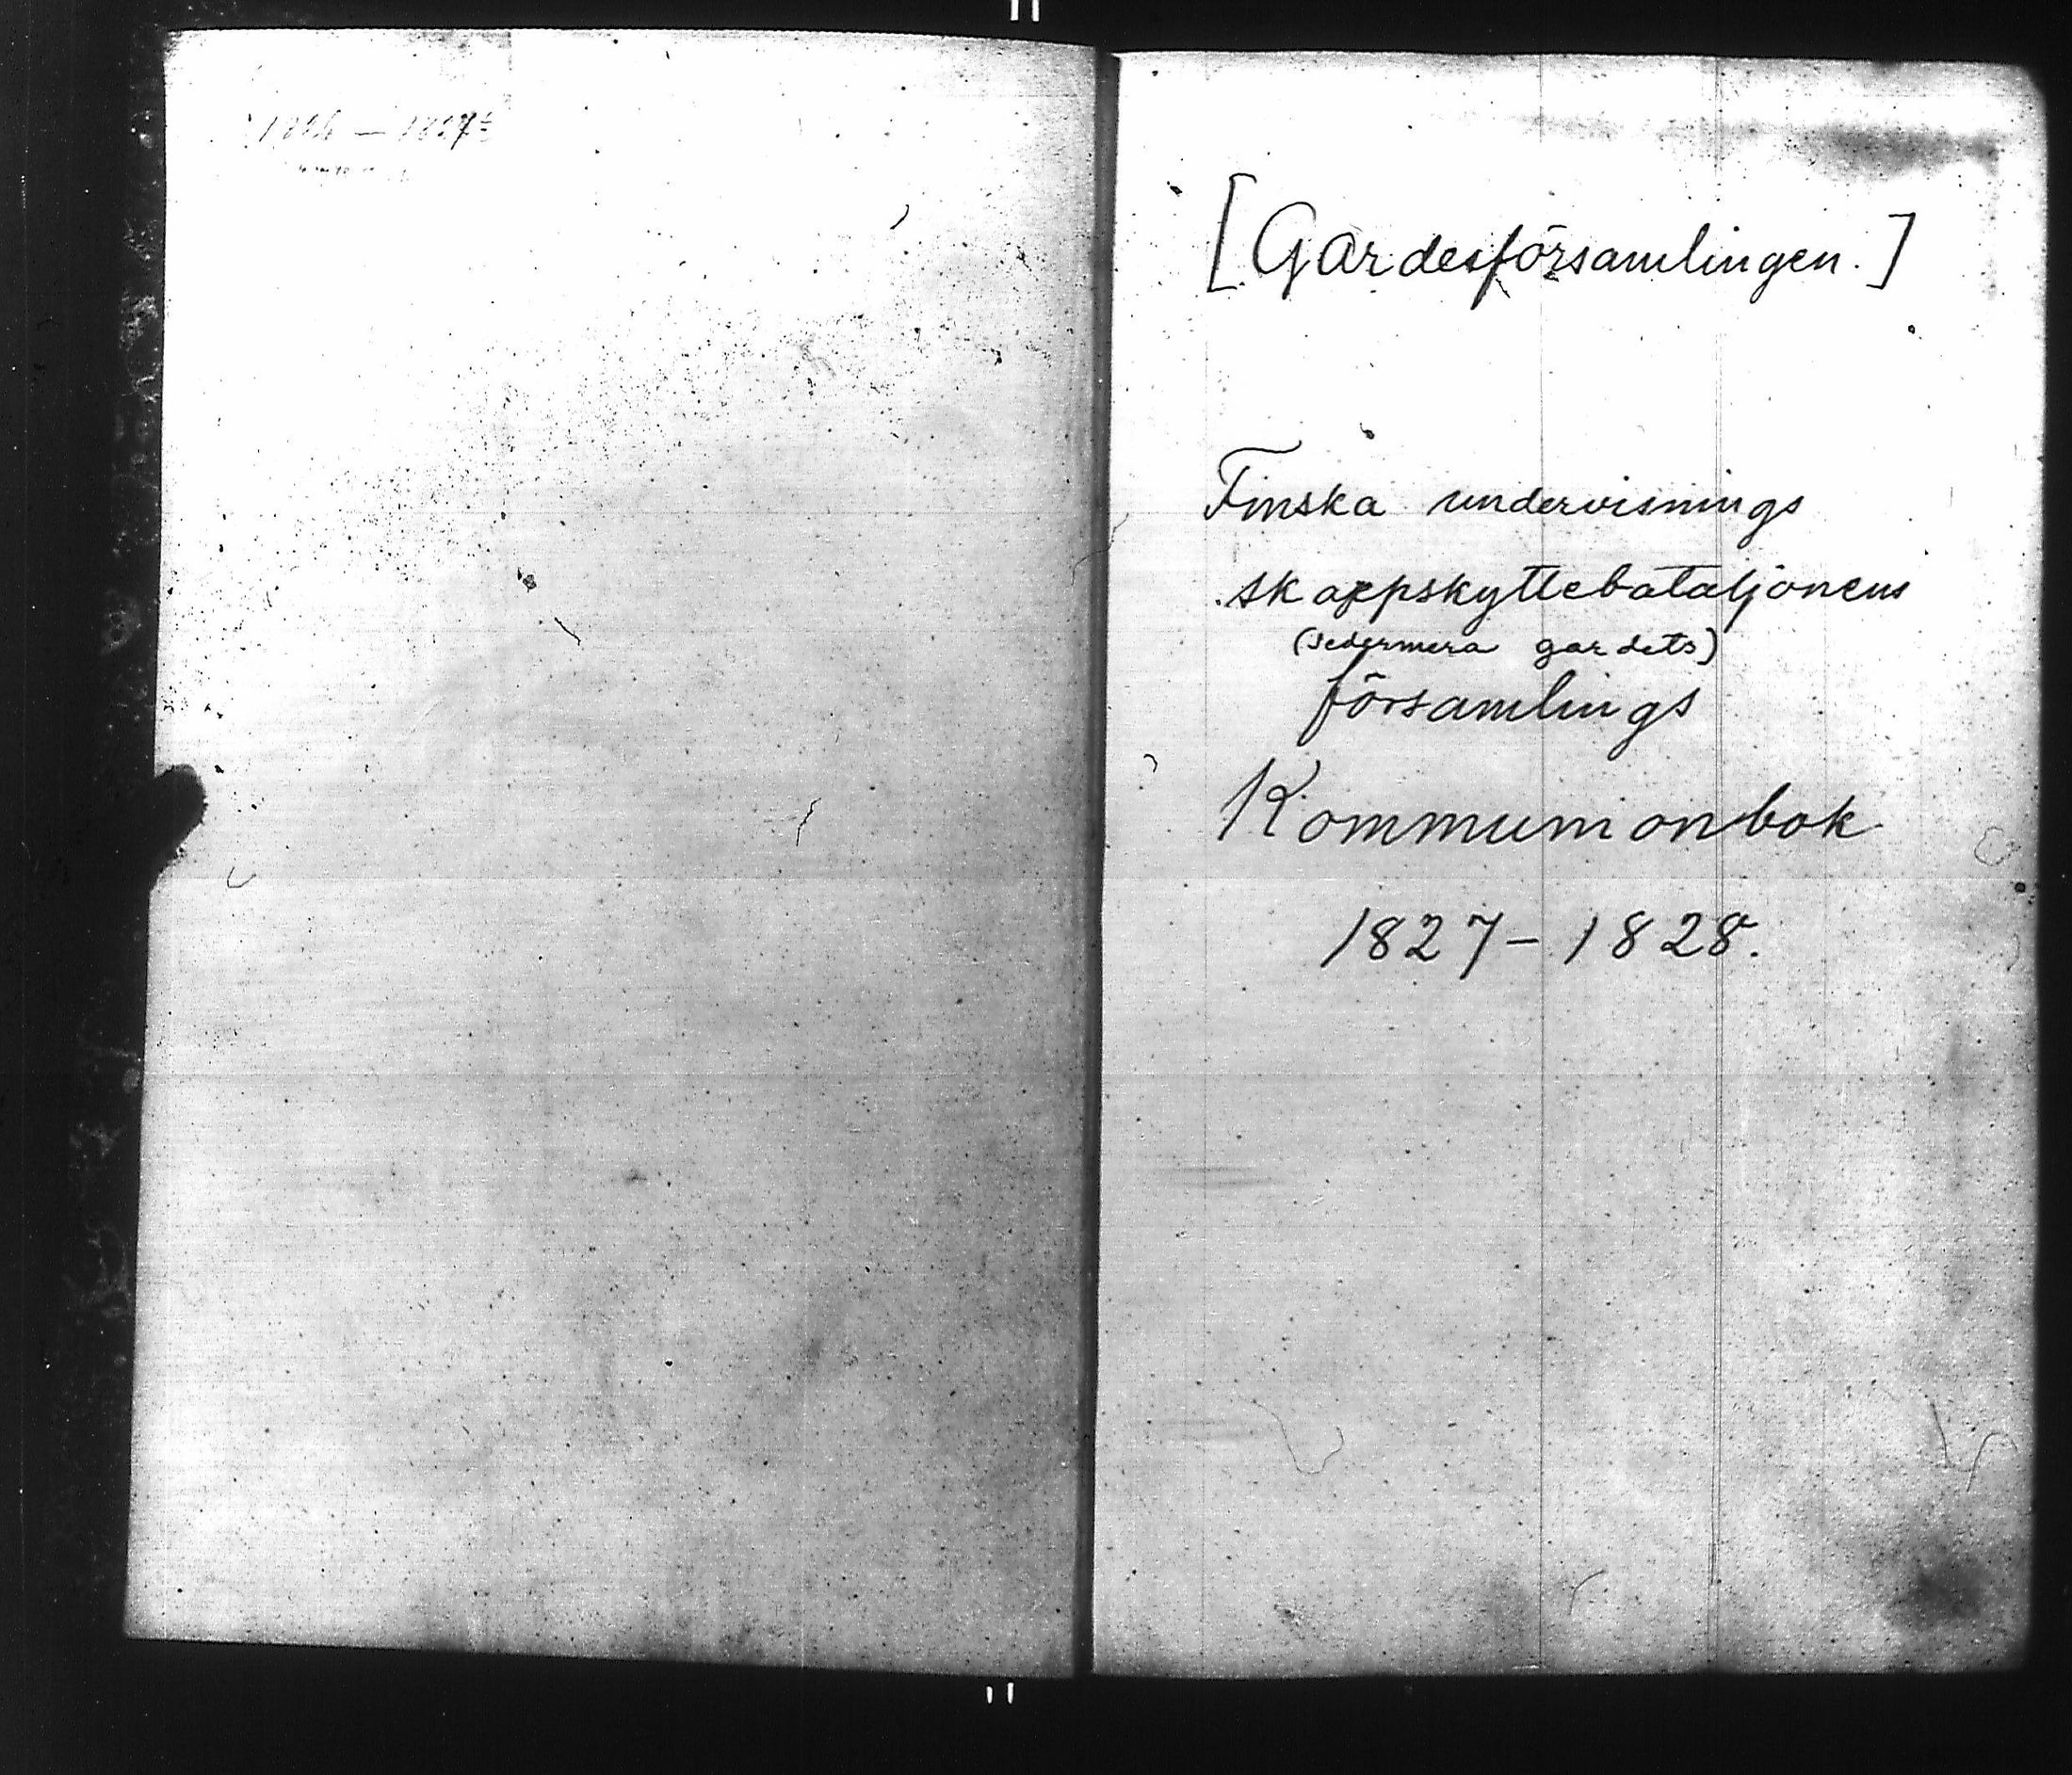 [Gardesförsamlingen.]
Finska undervisnings
skarpskyttebataljonens
(sedermera gardets)
församlings
Kommunionbok
1827-1828.